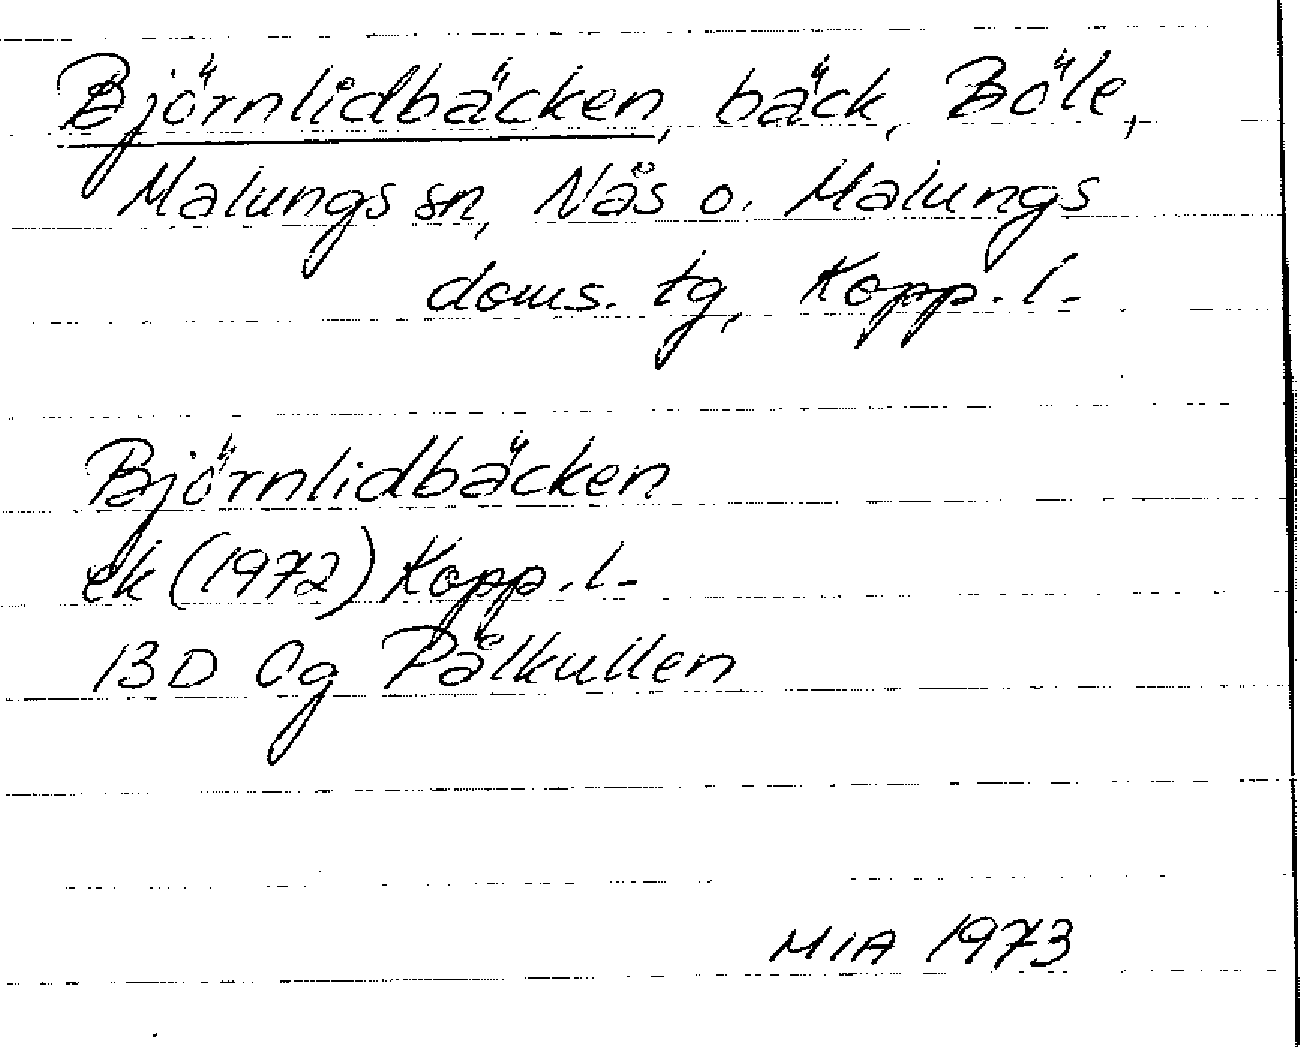 Björnlidbäcken, bäck, Böle,
Malungs sn, Nås o. Malungs
doms. tg, Kopp. l.
Björnlidbäcken
ek (1972) Kopp. l.
13D 0g Pålkullen
MIA 1973